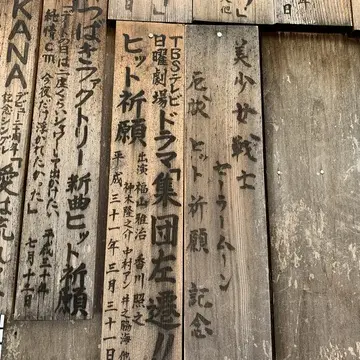 美少女戦士
セーラームーン
応援 ヒット祈願 記念
TBSテレビ
日曜劇場 ドラマ「集団左遷!!
ヒット祈願
出演 福山雅治 香川照之
神木隆之介 中村アン 井之脇海 他
平成三十一年三月三十一日
つばきファクトリー 新曲ヒット祈願
純情cm
今夜だけ浮かれたかった」
平成三十年
七月十一日
KANA
デビュー
記念シングル
「愛は